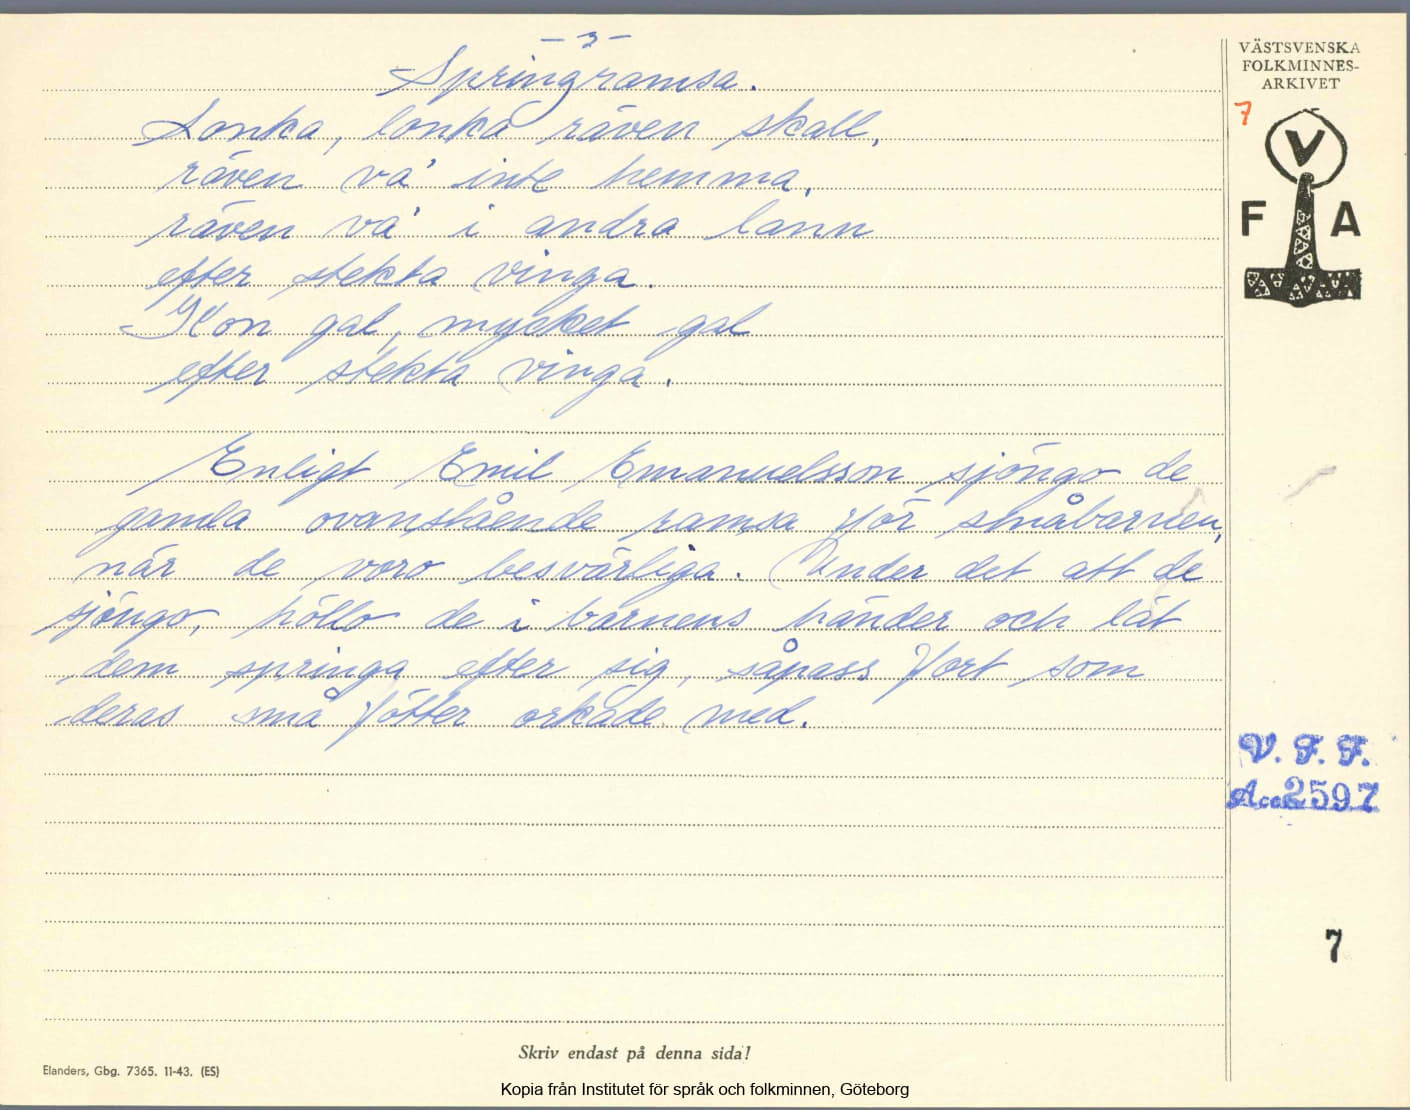 - 3 -
Springramsa.
Lonka, lonka räven skall,
räven va' inte hemma,
räven va' i andra lann
efter stekta vinga.
Kon gal, mycket gal
efter stekta vinga.
Enligt Emil Emanuelsson sjöngo de
gamla ovanstående ramsa för småbarnen,
när de voro besvärliga. Under det att de
sjöngo, höllo de i barnens händer och lät
dem springa efter sig, såpass fort som
deras små fötter orkade med.
VÄSTSVENSKA
FOLKMINNES-
ARKIVET
7
V
F A
V. F. F.
Acc. 2597
7
Skriv endast på denna sida!
Elanders, Gbg. 7365. 11-43. (ES)
Kopia från Institutet för språk och folkminnen, Göteborg